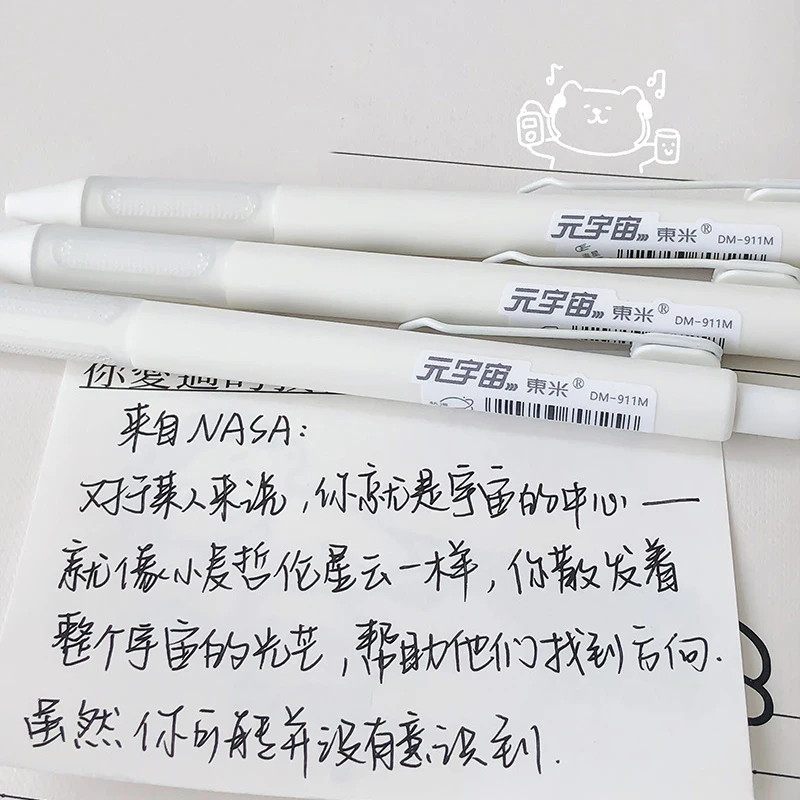 元宇宙 東米® DM-911M
元宇宙 東米® DM-911M
元宇宙 東米® DM-911M
你愛過的
来自NASA:
对于某人来说,你就是宇宙的中心——
就像小麦哲伦星云一样,你散发着
整个宇宙的光芒,帮助他们找到方向.
虽然你可能并没有意识到.